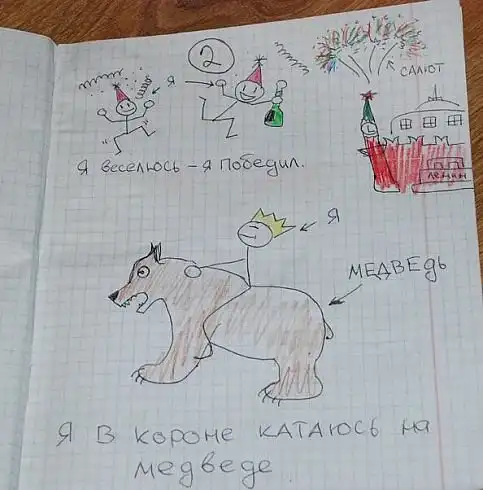 2
Я
САЛЮТ
Я веселюсь – я победил.
ЛЕНИН
Я
МЕДВЕДЬ
Я В короне КАТАЮСЬ на
медведе